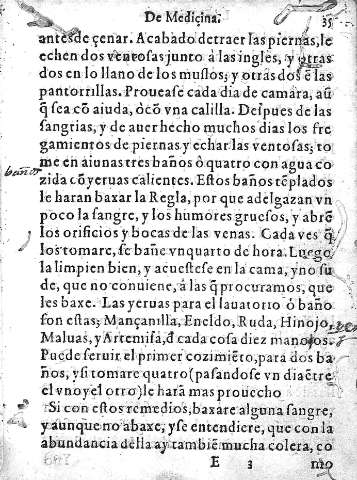 De Mediçina. 35
antesde çenar. Acabado detraer las piernas, le
echen dos ventosas junto à las ingles, y otras
dos en lo llano de los muslos; y otras dos ẽ las
pantorrillas. Prouease cada dia de camara, aũ
q̃ sea cõ aiuda, ò cõ vna calilla. Despues de las
sangrias, y de auer hecho muchos dias los fre
gamientos de piernas y echar las ventosas; to
me en aiunas tres baños ò quatro con agua co
baños
zida cõ yeruas calientes. Estos baños tẽplados
le haran baxar la Regla, por que adelgazan vn
poco la sangre, y los humores gruesos, y abrẽ
los orificios y bocas de las venas. Cada ves q̃
los tomare, se bañe vn quarto de hora. Luego
la limpien bien, y acuestese en la cama, y no su
de, que no conuiene, à las q̃ procuramos, que
les baxe. Las yeruas para el lauatorio ò baño
son estas; Mançanilla, Eneldo, Ruda, Hinojo,
Maluas, y Artemisa, đ cada cosa diez manojos.
Puede seruir el primer cozimiẽto, para dos ba
ños, y si tomare quatro (pasandose vn dia ẽtre
el vno y el otro) le harà mas prouecho
Si con estos remedios, baxare alguna sangre,
y aunque no abaxe, y se entendiere, que con la
abundancia della ay tambiẽ mucha colera, co
E 3 mo